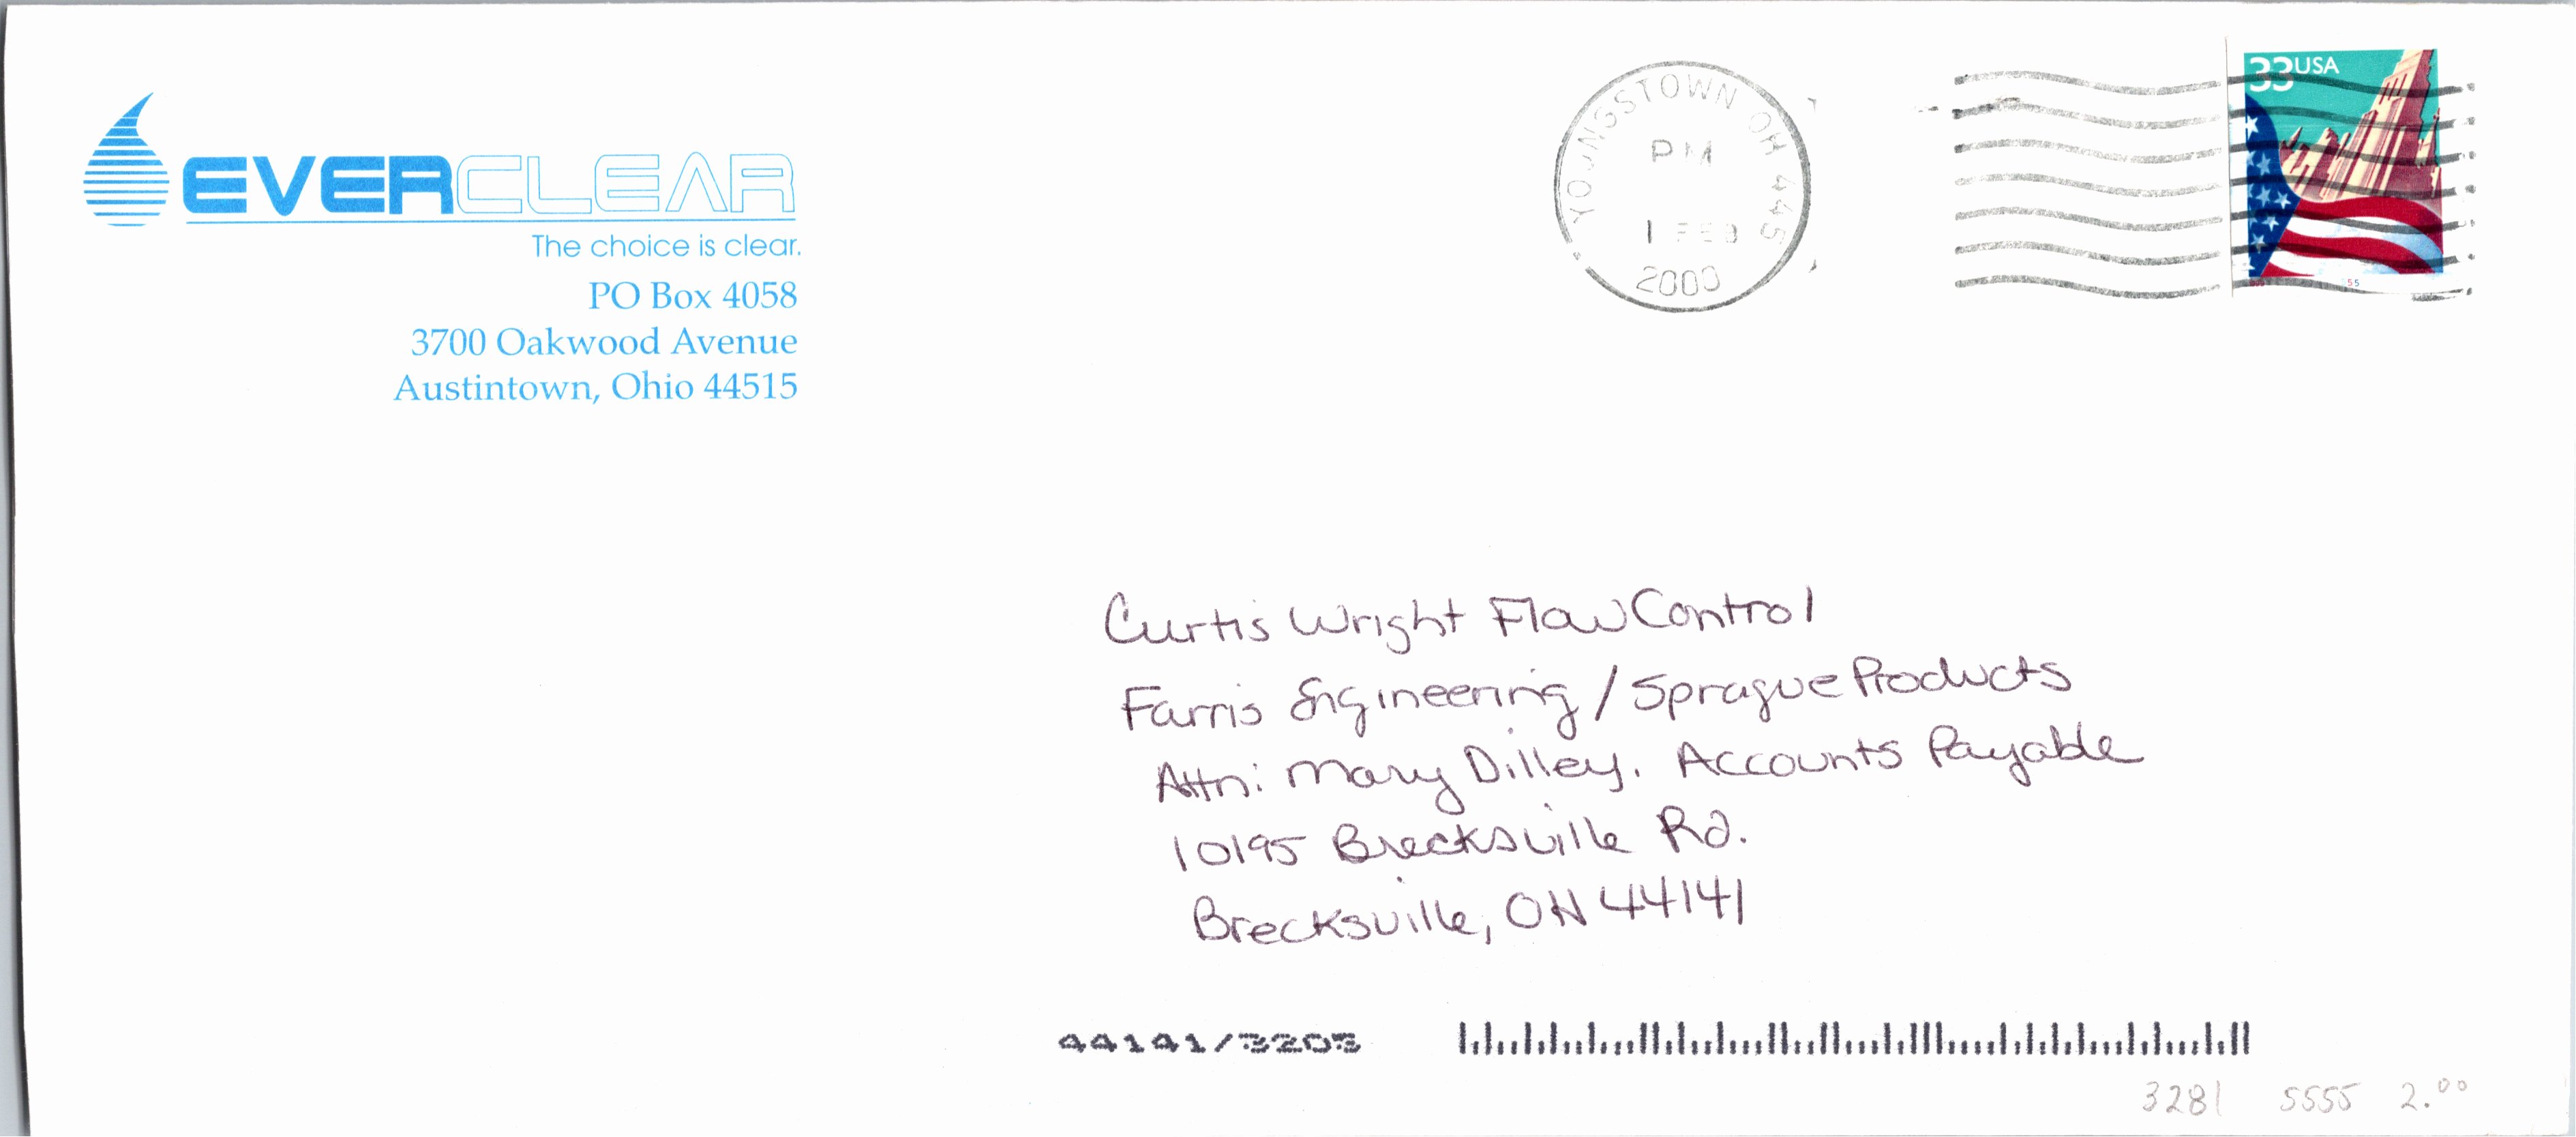 EVERCLEAR
The choice is clear.
PO Box 4058
3700 Oakwood Avenue
Austintown, Ohio 44515
YOUNGSTOWN OH 445
PM
1 FEB
2000
33USA
Curtis Wright Flow Control
Farris Engineering / Sprague Products
Attn: Mary Dilley. Accounts Payable
10195 Brecksville Rd.
Brecksville, OH 44141
44141/3203
3281 5555 2.00